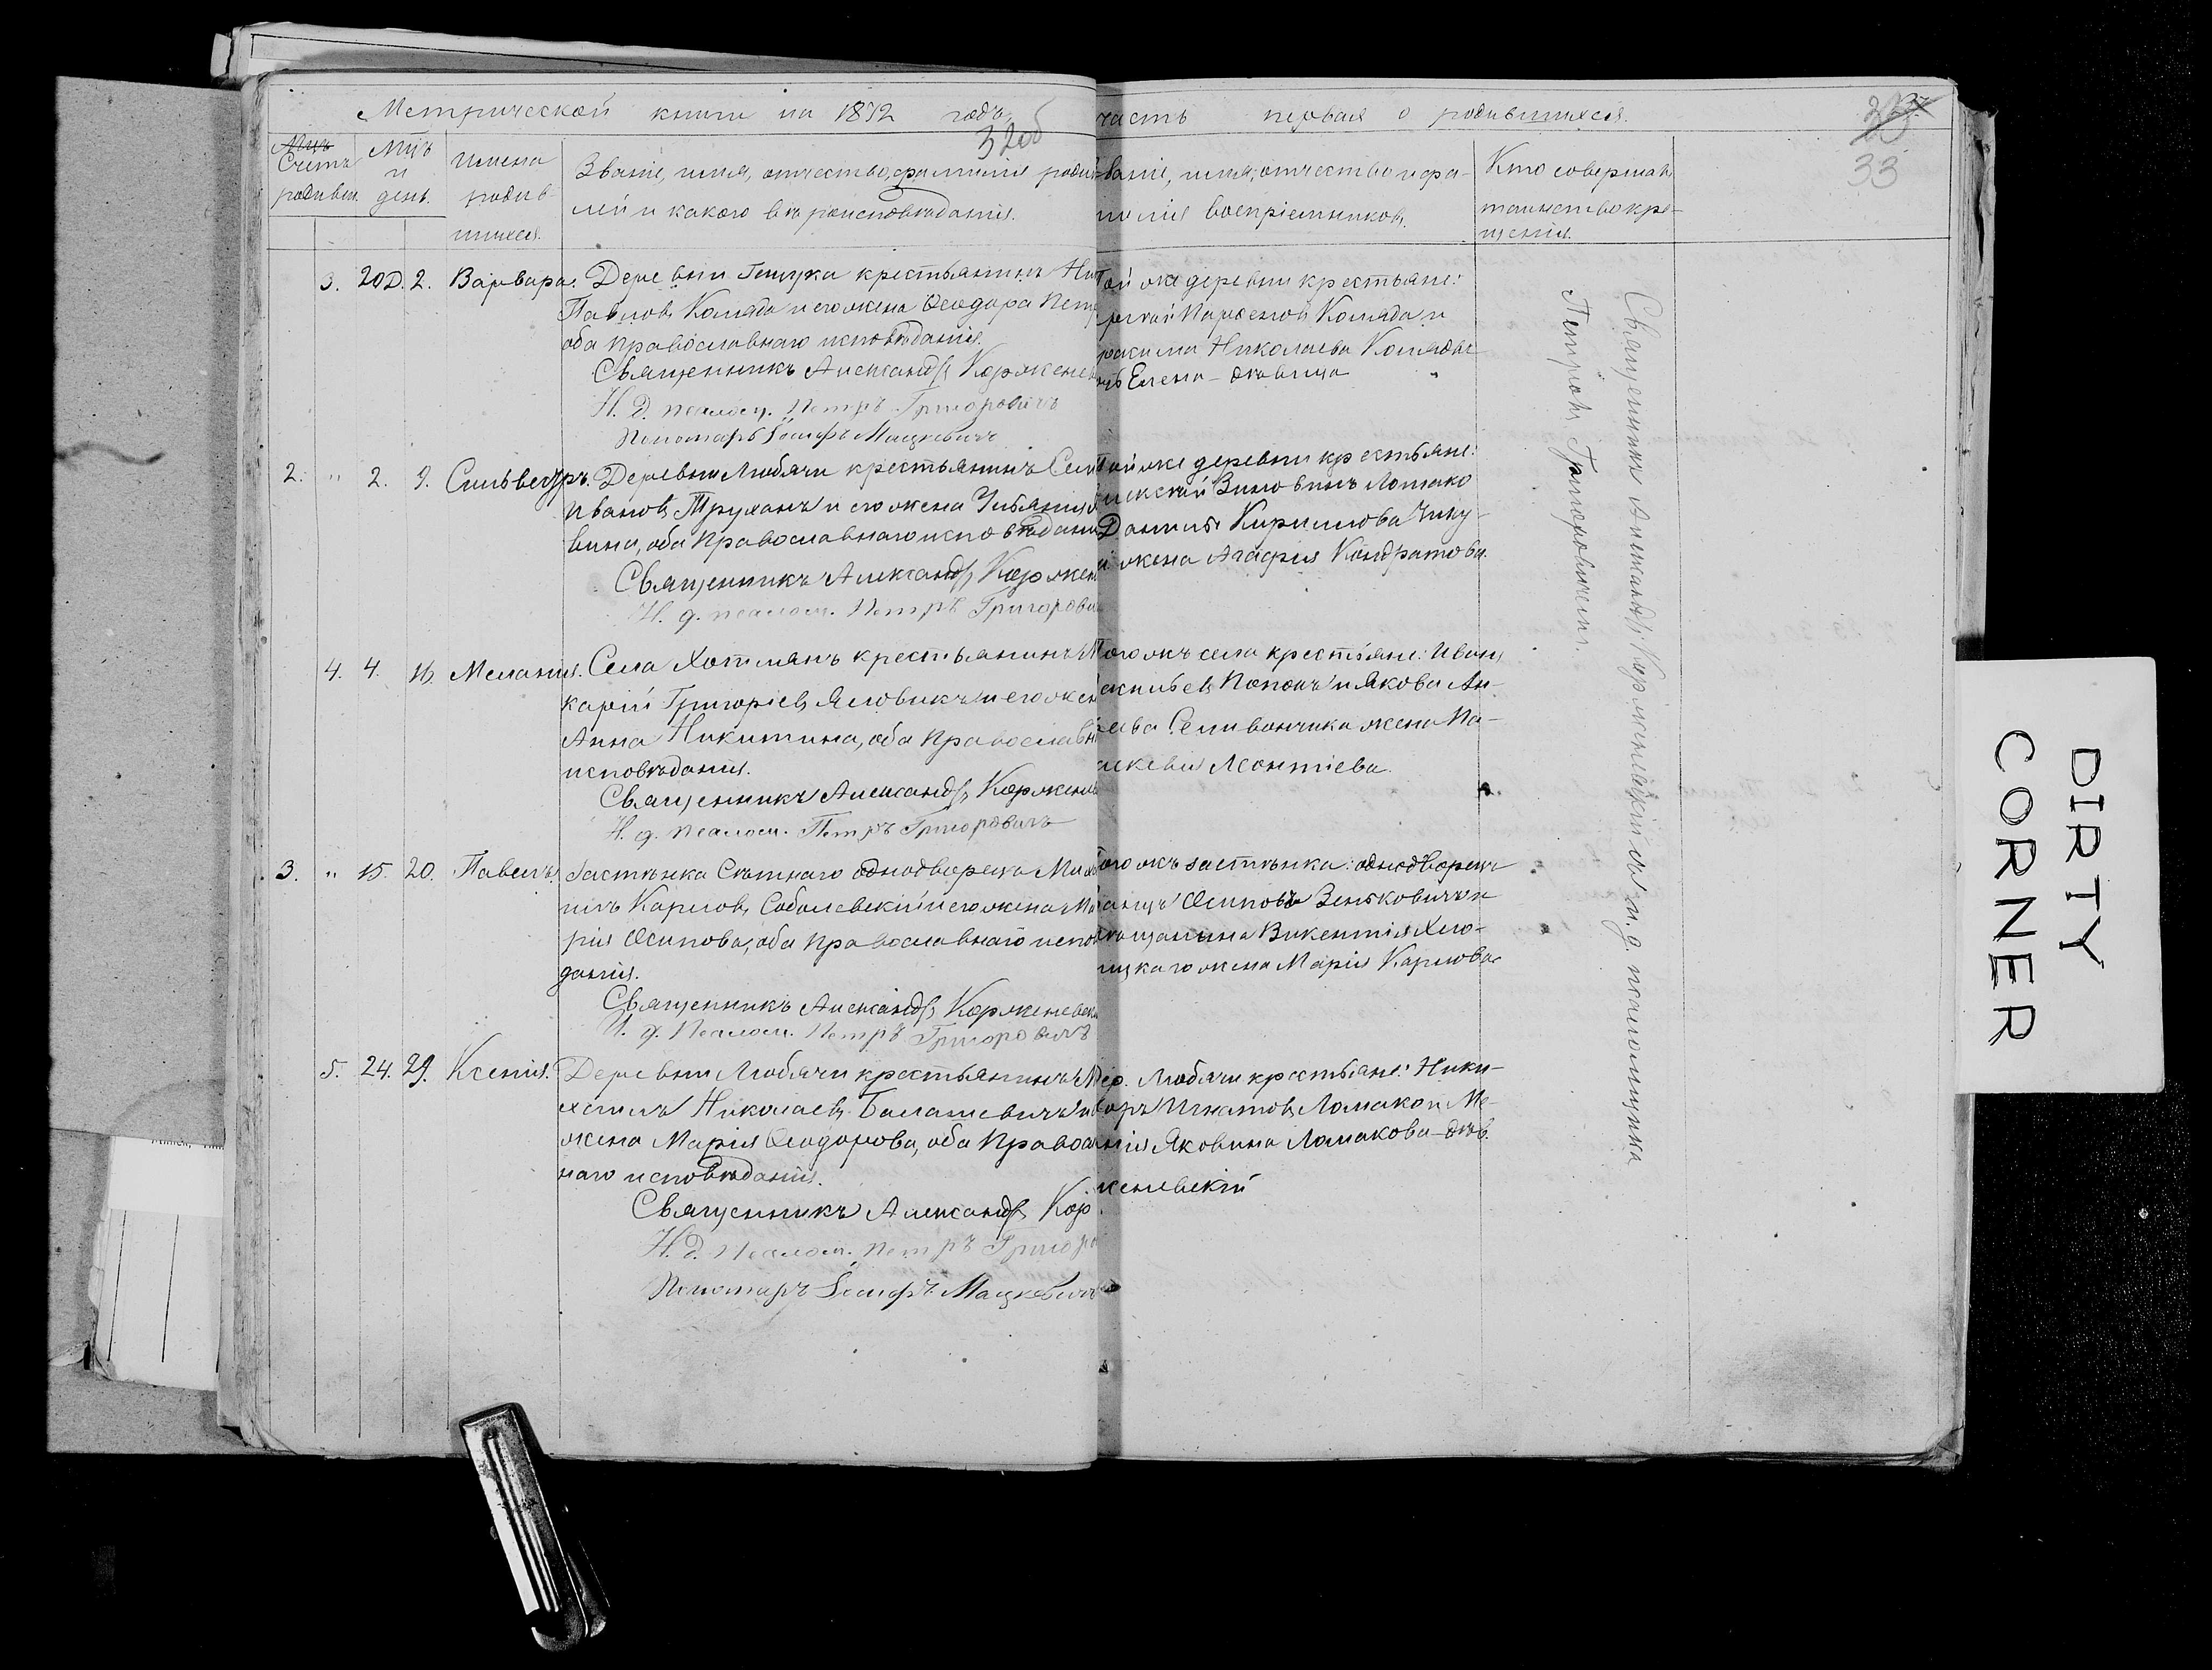 Метрической книги на 1872 годъ
32об
часть первая о родившихся.
33
Счетъ родивш.
Мцъ и день.
Имена родив-
шихся.
Званіе, имя, отчество, фамилія роди-
лей и какого вѣроисповѣданія.
званіе, имя, отчество и фа-
милія воспріемниковъ.
Кто совершалъ
таинство кре-
щенія.
3. 20Д. 2. Варвара. Деревни крестьянинъ Ни
Павловъ Коляда и его жена Ѳеодора Петр
оба православнаго исповѣданія.
Священникъ Александръ Коржене
И. д. псалом. Петръ Григоровичъ
Пономарь Іосифъ Мацкевичъ
той же деревни крестьяне:
Парѳеновъ Коляда и
Николаева Коляды
Елена - дѣвица
2. " 2. 9. Сильвестръ. Деревни Любачи крестьянинъ Сем
Ивановъ Труханъ и его жена Ульяна
вина, оба православнаго исповѣдані
Священникъ Александръ Коржен
И. д. псалом. Петръ Григорови
Той же деревни крестьяне:
Зиновинъ Ломако
Даніила Кириллова Чику-
жена Агафія Кондратова.
4. 4. 16. Меланія. Села Хотлянъ крестьянинъ М
карій Григоріевъ Яловикъ и его жен
Анна Никитина, оба православн
исповѣданія.
Священникъ Александръ Коржен
И. д. псалом. Петръ Григоровичъ
ого жъ села крестьяне: Иванъ
асильевъ Попокъ и Якова Ан-
еева Селивончика жена Па-
Леонтіева.
3. " 15. 20. Павелъ. Застѣнка Сѣтнаго однодворецъ Ми
илъ Карловъ Соболевскій и его жена Ма
рія Осипова, оба православнаго испов
данія.
Священникъ Александръ Корженевск
И. д. псалом. Петръ Григоровичъ
ого жъ застѣнка: однодворецъ
Осиповъ Зеньковичъ и
мѣщанина Викентія Хло-
ицкаго жена Марія Карлова
5. 24. 29. Ксенія. Деревни Любачи крестьянинъ М
ихаилъ Николаевъ Балашевичъ и
жена Марія Ѳеодорова, оба правосл
наго исповѣданія.
Священникъ Александръ Кор
И. д. псалом. Петръ Григоро
Пономарь Іосифъ Мацкевичъ
ер. Любачи крестьяне: Ники-
форъ Игнатовъ Ломако и Ме-
нія Яковина Ломакова - дѣв.
женевскій
Священникъ Александръ Корженевскій съ и. д. псаломщика
Петромъ Григоровичемъ.
DIRTY
CORNER